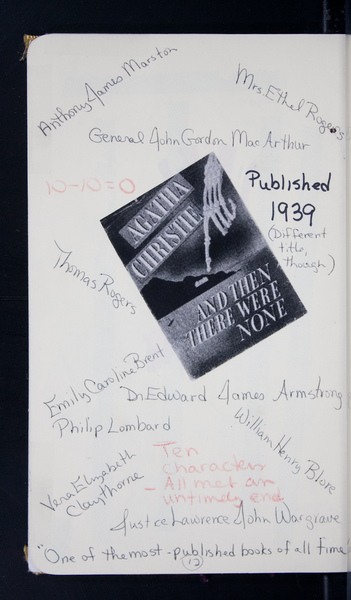 Anthony James Marston
Mrs. Ethel Rogers
General John Gordon MacArthur
10-10=0
Published
1939
(Different
title,
though)
AGATHA
CHRISTIE
AND THEN
THERE WERE
NONE
Thomas Rogers
Emily Caroline Brent
Dr Edward James Armstrong
Philip Lombard
William Henry Blore
Vera Elizabeth
Claythorne
Ten
characters
- All met an
untimely end
Justice Lawrence John Wargrave
"One of the most-published books of all time"
12